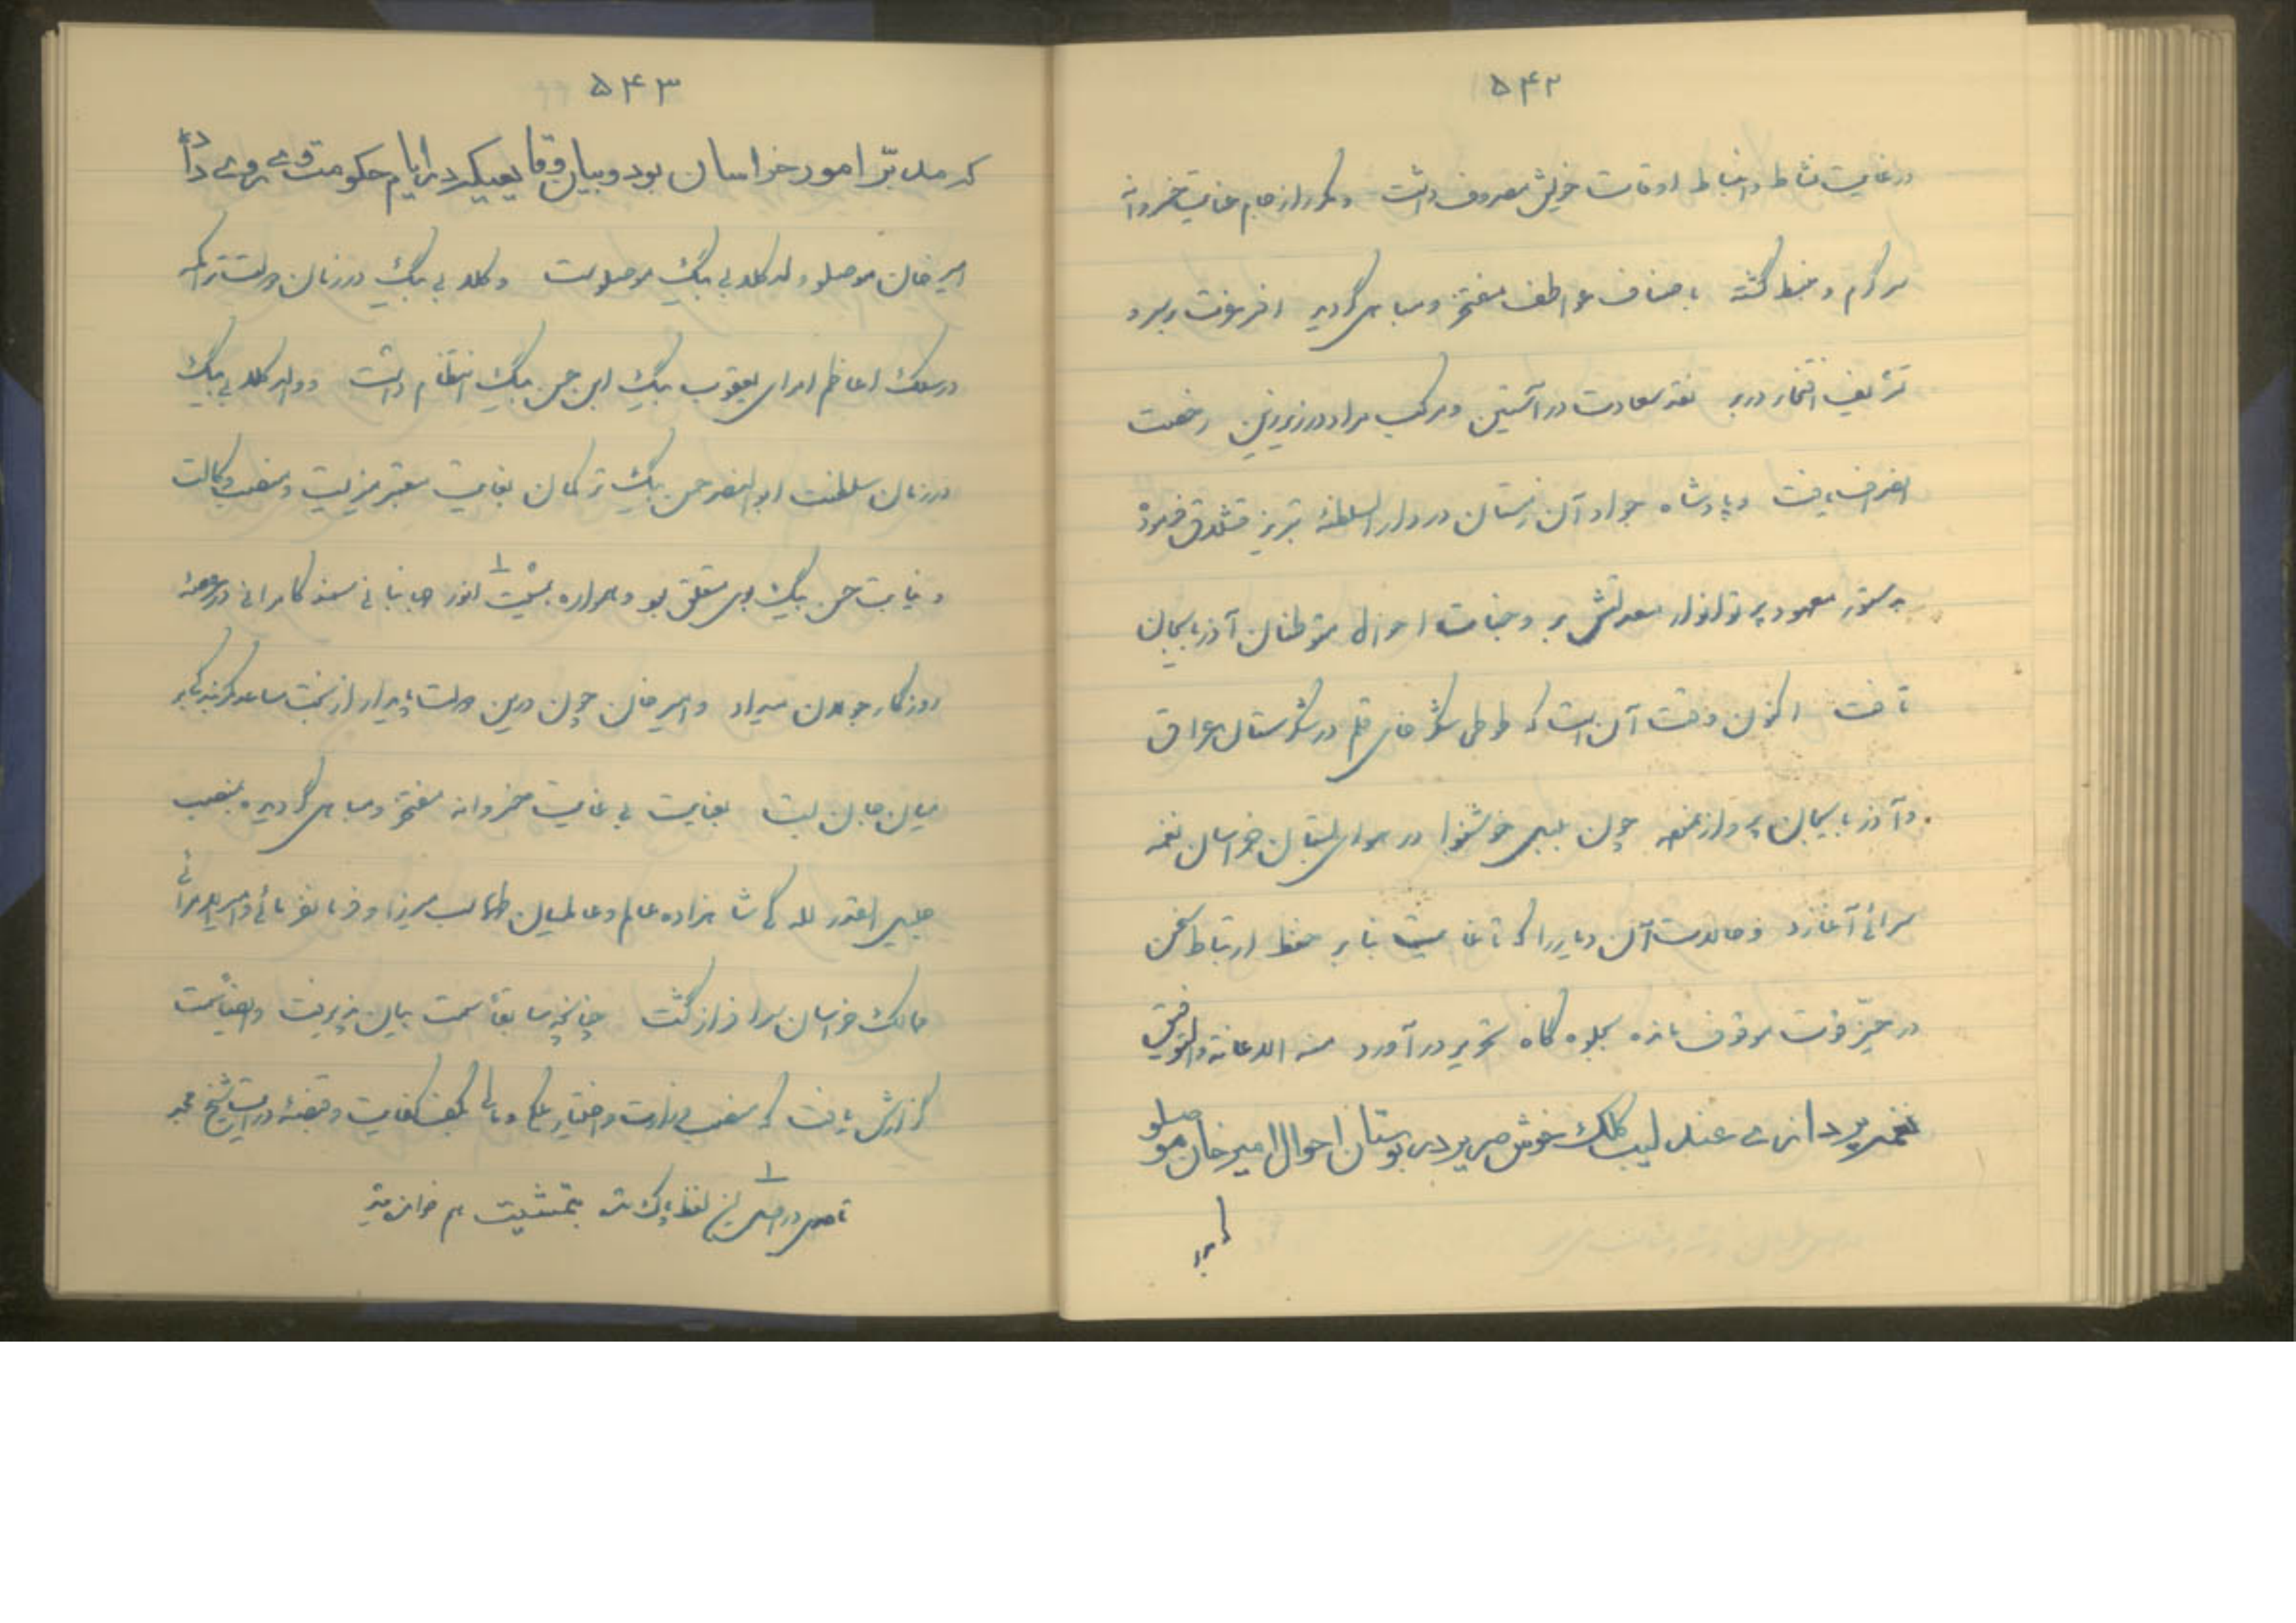 ۵۴۲
در غایت نشاط و انبساط اوقات خویش مصروف داشت و مکرر از جام عنایت خسروانه
سرگرم و مغتبط گشته باصناف عواطف مفتخر و مباهی گردید
تشریف افتخار در بر نقد سعادت در آستین و مرکب مراد در زیر زین رخصت
انصراف یافت و پادشاه جواد آن زمستان در دار السلطنهٔ تبریز قشلاق فرموده
بدستور معهود پرتو انوار معدلتش بر وجنات احوال متوطنان آذربایجان
تافت اکنون وقت آن است که طوطی شکرخای قلم در شکرستان عراق
و آذربایجان پرواز نموده چون بلبل خوشنوا در هوای بستان خراسان نغمه
سرائی آغازد و حالات آن دیار را که تا غایت بنا بر حفظ ارتباط سخن
در حیّز فوت موقوف مانده بجلوه گاه تحریر در آورد منه الاعانة و التوفیق
نغمه پردازی عندلیب کلک خوش صریر در بوستان احوال امیرخان موصلو
۵۴۳
که مدبّر امور خراسان بود و بیان وقایعیکه در ایام حکومت وی روی داد
امیر خان موصلو ولد کلابی بیگ موصلوست و کلابی بیگ در زمان دولت تراکمه
در سلک اعاظم امرای یعقوب بیگ ابن حسن بیگ انتظام داشت و والد کلابی بیگ
در زمان سلطنت ابوالنصر حسن بیگ ترکمان بغایت معتبر میزیست و منصب وکالت
و نیابت حسن بیگ بوی متعلق بود و همواره بمشیت ۱ امور جهانبانی سمند کامرانی در عرصهٔ
روزگار جولان میداد و امیر خان چون درین دولت پایدار از بخت ساعد کمر بندگی بر
میان جان بست بعنایت بی غایت خسروانه مفتخر و مباهی گردیده بمنصب
جلیل القدر للگی شاهزاده عالم و عالمیان طهماسب میرزا و فرمانفرمائی و امیر الامرائی
ممالک خراسان سرافراز گشت چنانچه سابقاً سمت بیان پذیرفت و ایضاً سمت
گزارش یافت که منصب وزارت و اختیار ملکی و مالی بکف کفایت و قبضهٔ درایت شیخ مجد
۱ تا حدی در اصل این لفظ پاک شده بتمشیت هم خوان میتد